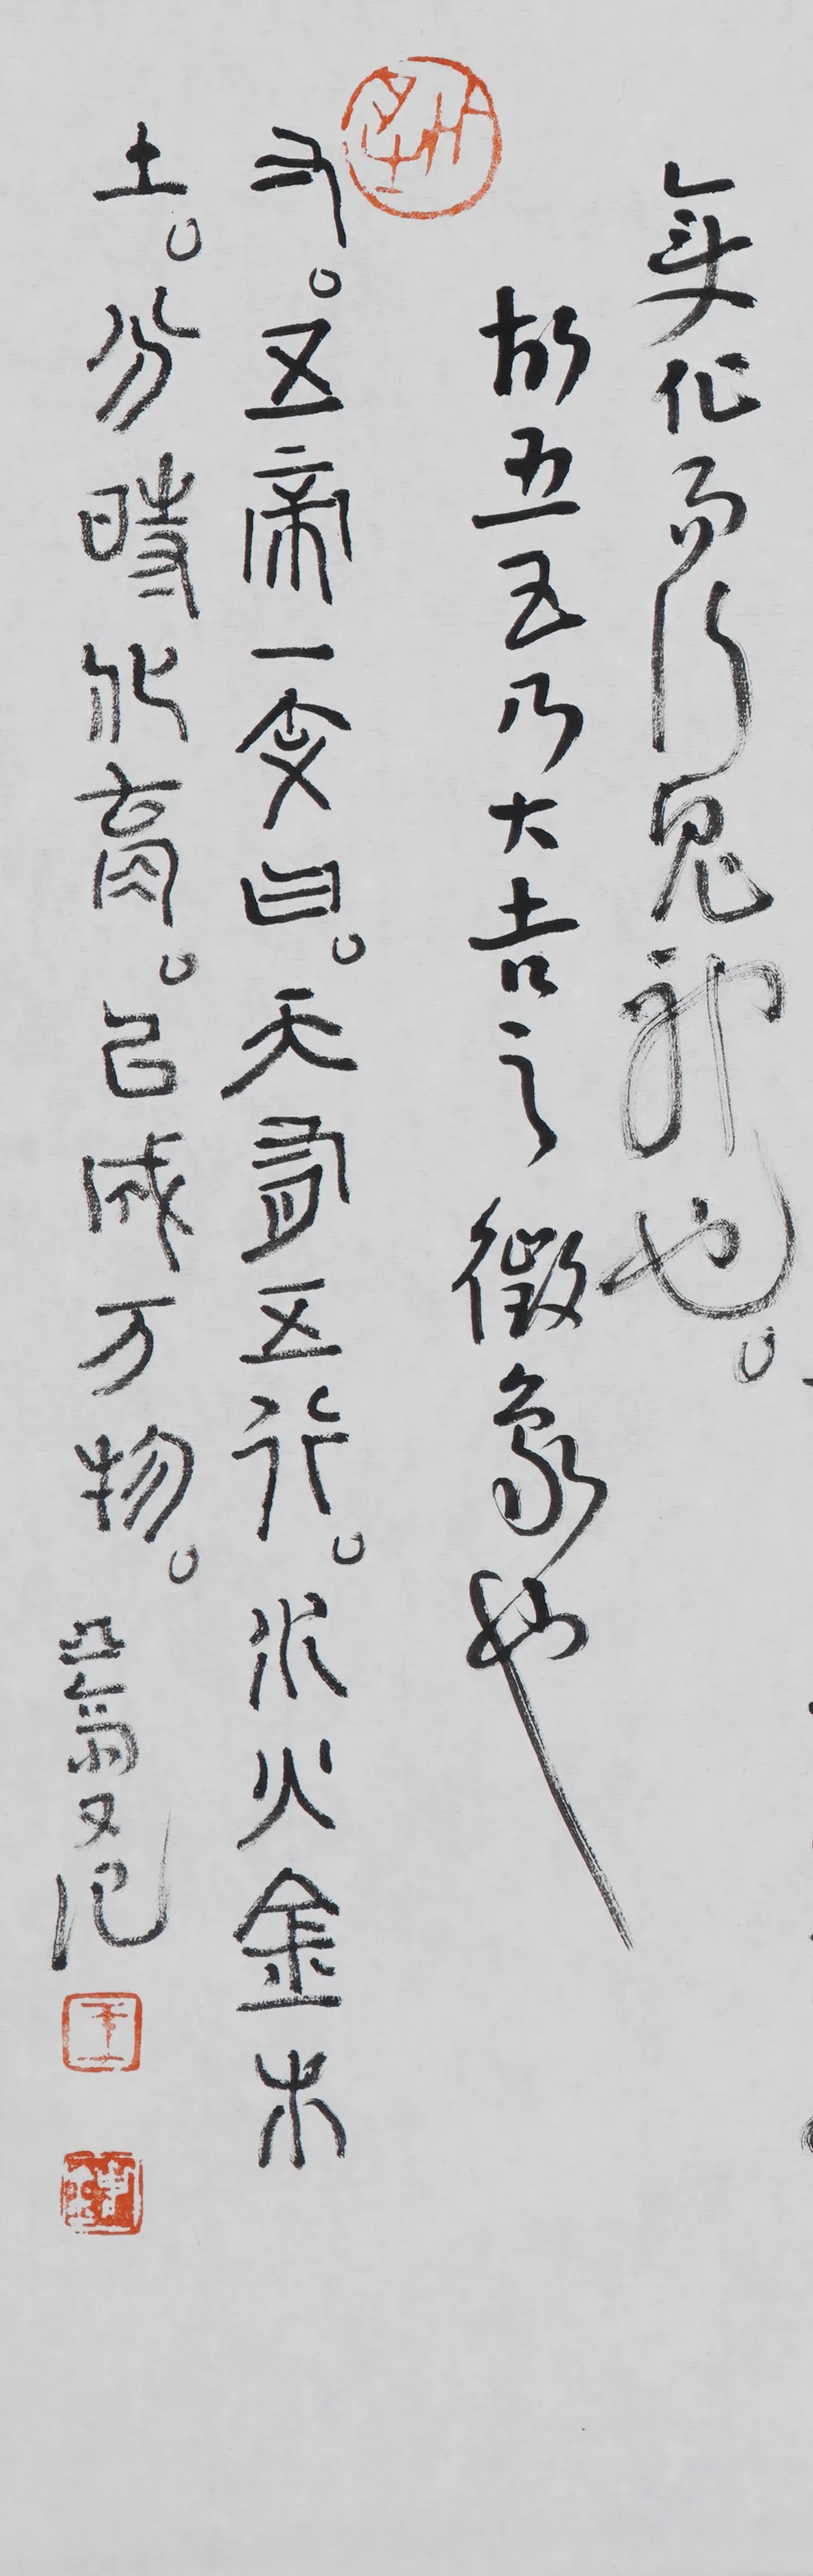 变化而行鬼神也。
故五五乃大吉之徵象也
又。五帝一变曰。天有五行。水火金木
土。分時化育。以成万物。
又记